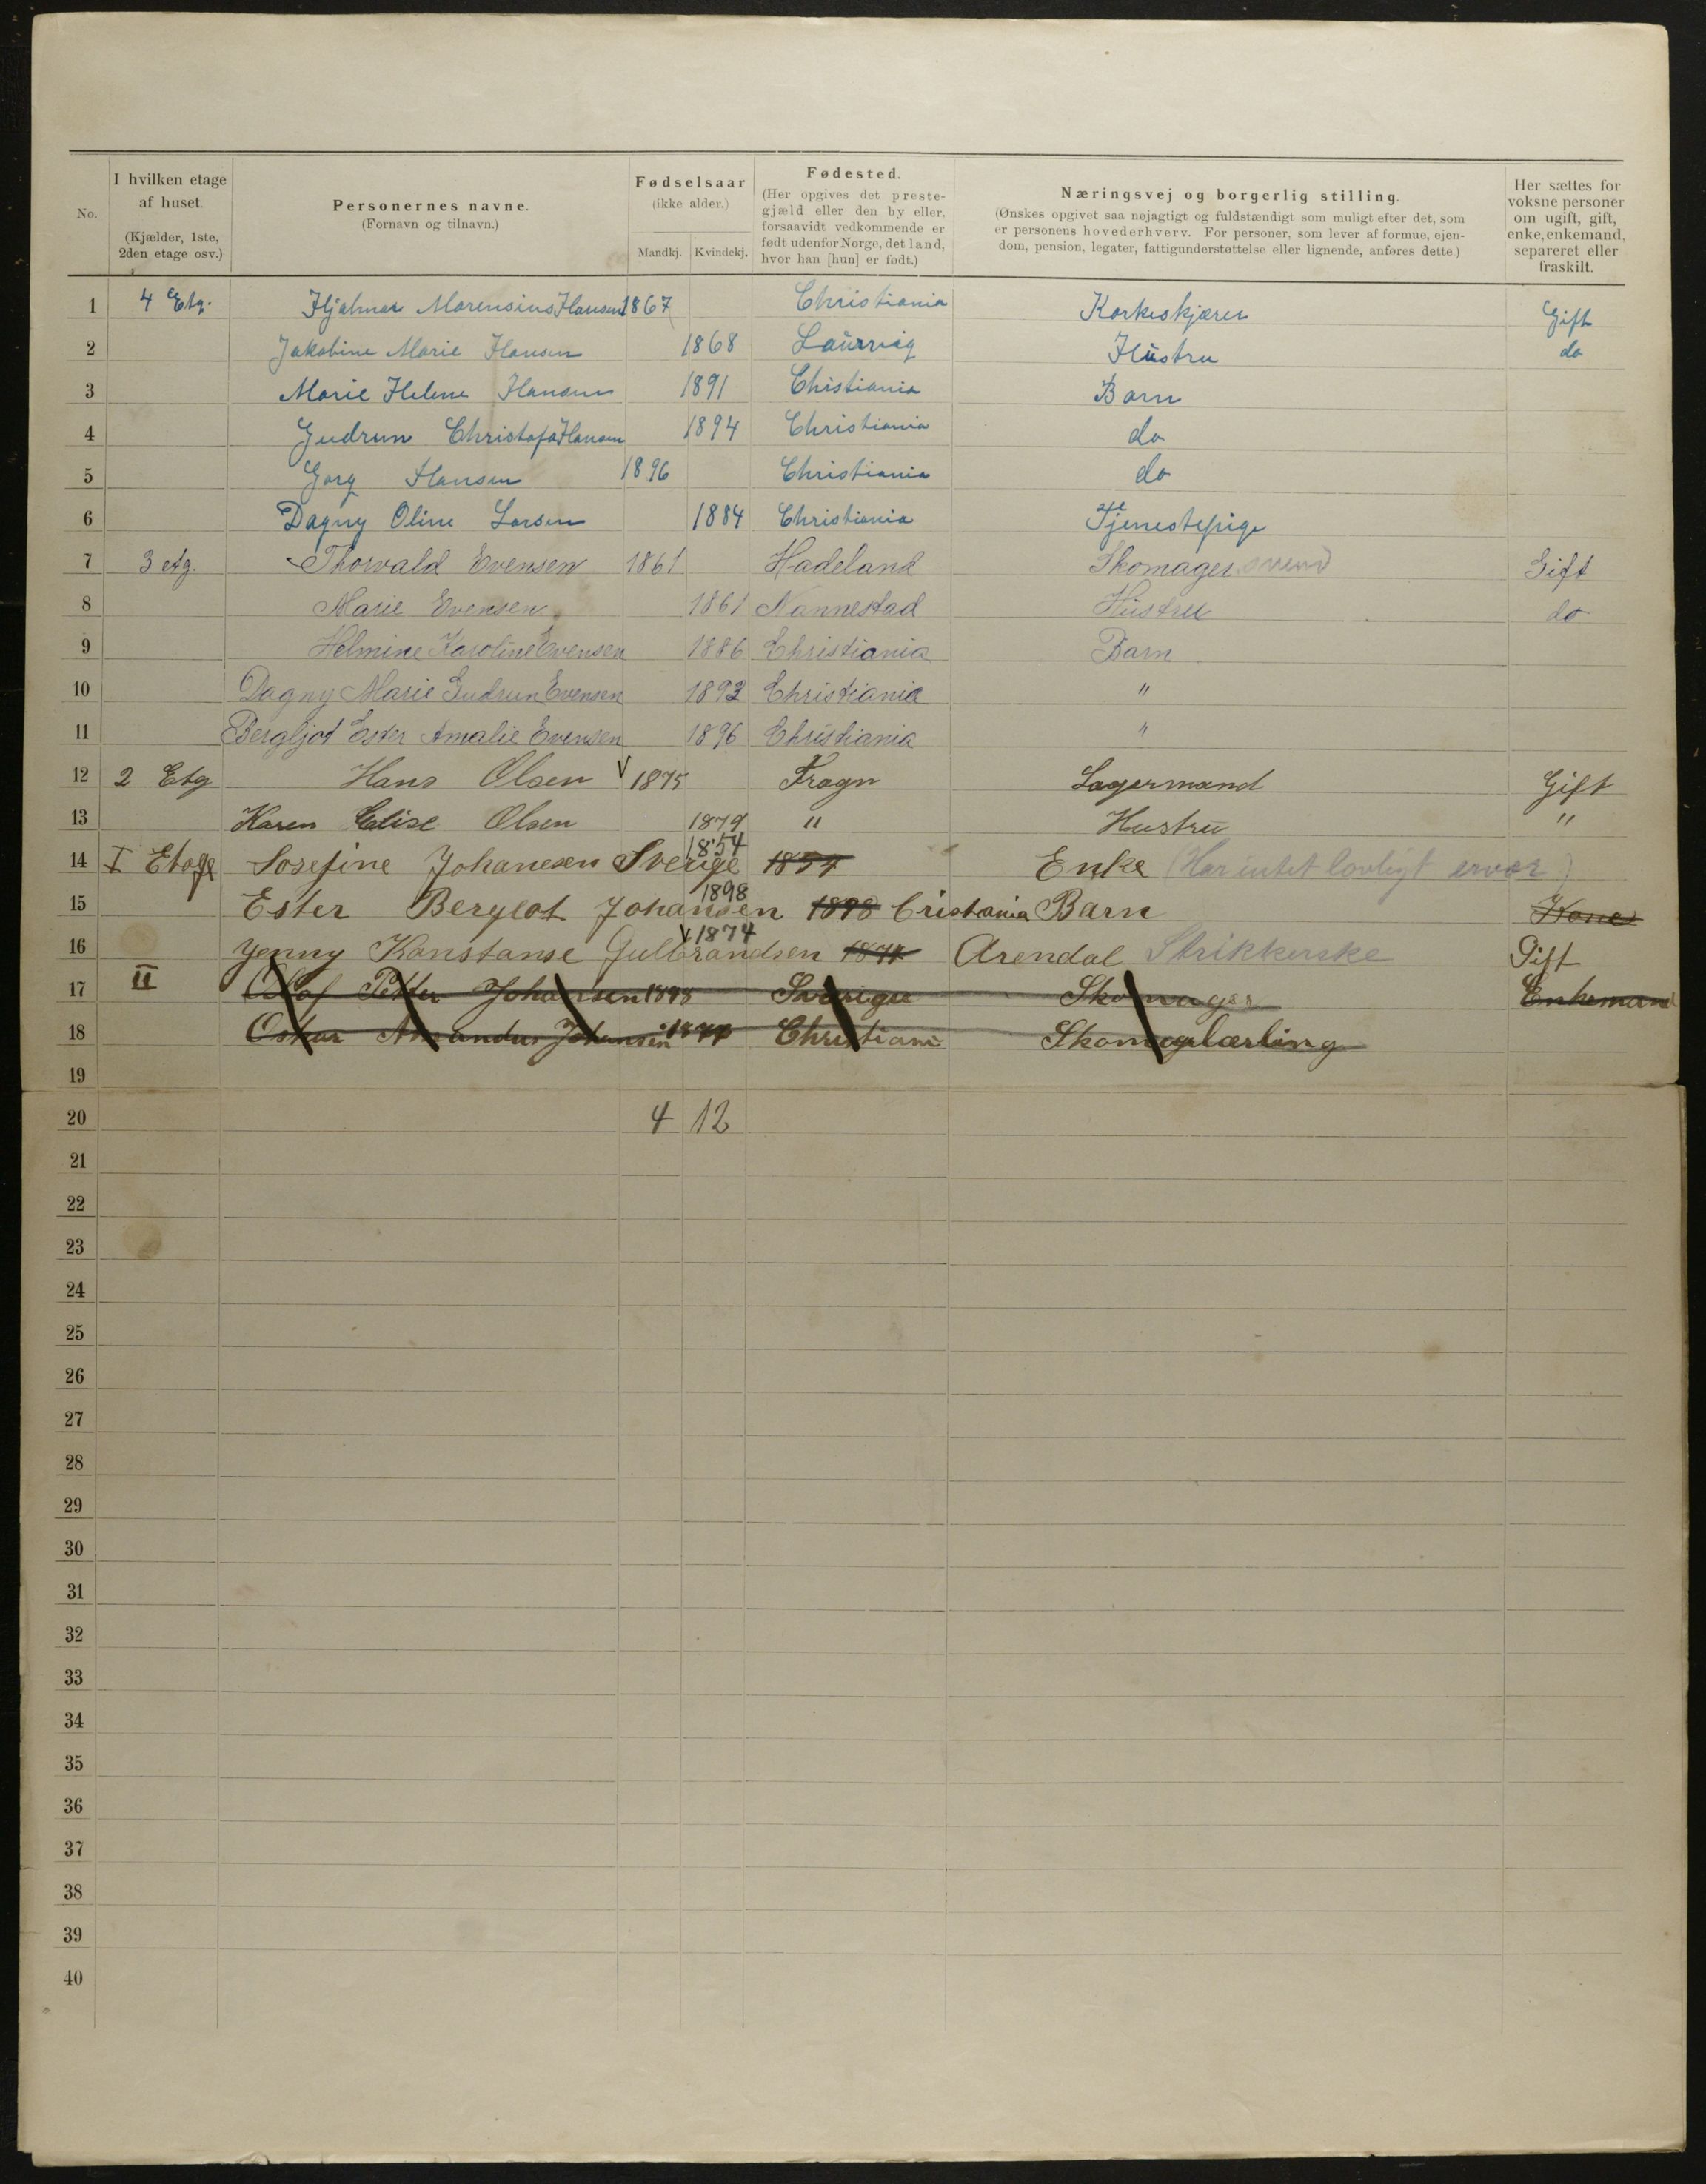 No. I hvilken etage af huset. (Kjælder, 1ste, 2den etage osv.) Personernes navne. (Fornavn og tilnavn.) Fødselsaar (ikke alder.) Mandkj. Kvindekj. Fødested. (Her opgives det prestegjæld eller den by eller, forsaavidt vedkommende er født udenfor Norge, det land, hvor han [hun] er født.) Næringsvej og borgerlig stilling. (Ønskes opgivet saa nøjagtigt og fuldstændigt som muligt efter det, som er personens hovederhverv. For personer, som lever af formue, ejendom, pension, legater, fattigunderstøttelse eller lignende, anføres dette) Her sættes for voksne personer om ugift, gift, enke, enkemand, separeret eller fraskilt.
1 4 Etg. Hjalmar Marensius Hansen 1867 Christiania Korkeskjærer Gift
2 Jakobine Marie Hansen 1868 Laurvig Hustru do
3 Marie Helene Hansen 1891 Christiania Barn
4 Gudrun Christofa Hansen 1894 Christiania do
5 Gorg Hansen 1896 Christiania do
6 Dagny Oline Larsen 1884 Christiania Tjenestepige
7 3 etg. Thorvald Evensen 1861 Hadeland Skomagersvend Gift
8 Marie Evensen 1861 Nannestad Hustru do
9 Helmine Karoline Evensen 1886 Christiania Barn
10 Dagny Marie Gudrun Evensen 1892 Christiania "
11 Bergljot Ester Amalie Evensen 1896 Christiania "
12 2 Etg Hans Olsen V 1875 Frogn Lagermand Gift
13 Karen Elise Olsen 1879 " Hustru "
14 I Etage Josefine Johanesen Sverige 1854 1854 Enke (Har intet lovligt ervær)
15 Ester Berglot Johansen 1898 1898 Cristania Barn Kone
16 Yenny Konstanse Gulbrandsen V 1874 1874 Arendal Strikkerske Gift
17 II Olaf Petter Johansen 1848 Sverigee Skomager Enkemand
18 Oskar Amandus Johansen Christiani Skomagelærling
19
20 4 12
21
22
23
24
25
26
27
28
29
30
31
32
33
34
35
36
37
38
39
40